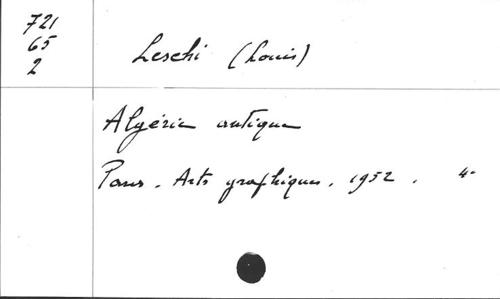 721
65
2
Leschi (Louis)
Algérie antique
Paris. Arts graphiques. 1952. 4°